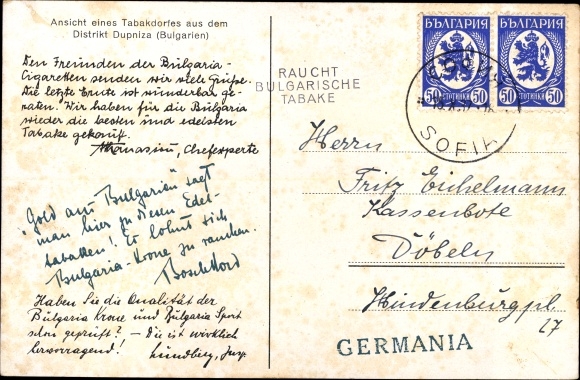 Ansicht eines Tabakdorfes aus dem
Distrikt Dupniza (Bulgarien)
Den Freunden der Bulgaria-
Cigaretten senden wir viele Grüße.
Die letzte Ernte ist wunderbar ge-
raten. Wir haben für die Bulgaria
wieder die besten und edelsten
Tabake gekauft.
Athanasiu, Chefexperte
"Gold aus Bulgarien" sagt
man hier zu diesen Edel-
tabaken! Es lohnt sich
Bulgaria-Krone zu rauchen.
Haben Sie die Qualität der
Bulgaria Krone und Bulgaria Sport
schon geprüft? – Die ist wirklich
hervorragend!
Lundberg, jun.
RAUCHT
BULGARISCHE
TABAKE
БЪЛГАРИЯ
50 СТОТИНКИ 50
БЪЛГАРИЯ
50 СТОТИНКИ 50
SOFIA
Herrn
Fritz Eichelmann
Kassenbote
Döbeln
Hindenburgpl.
27
GERMANIA